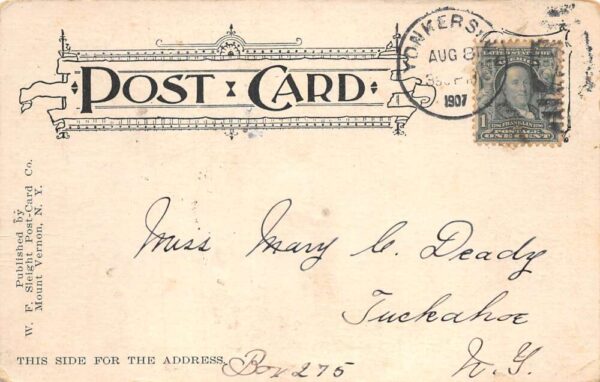 POST CARD
YONKERS
AUG 8
1907
1
BENJ. FRANKLIN
POSTAGE
ONE CENT
Published by
W. F. Sleight Post-Card Co.
Mount Vernon, N. Y.
Miss Mary C. Deady
Tuckahoe
N.Y.
THIS SIDE FOR THE ADDRESS.
Box 275